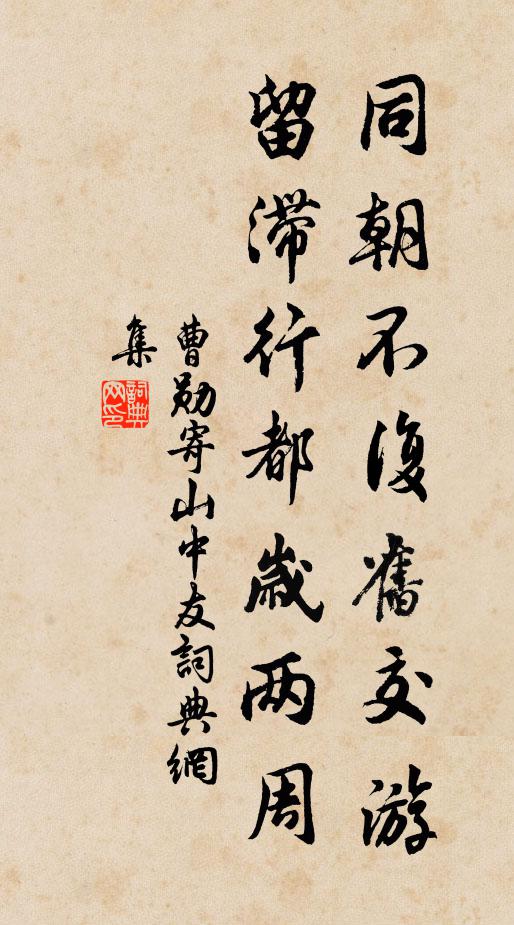 同朝不復舊交游
留滯行都歲两周
曹勛寄山中友詞典網
集
詞典
网印